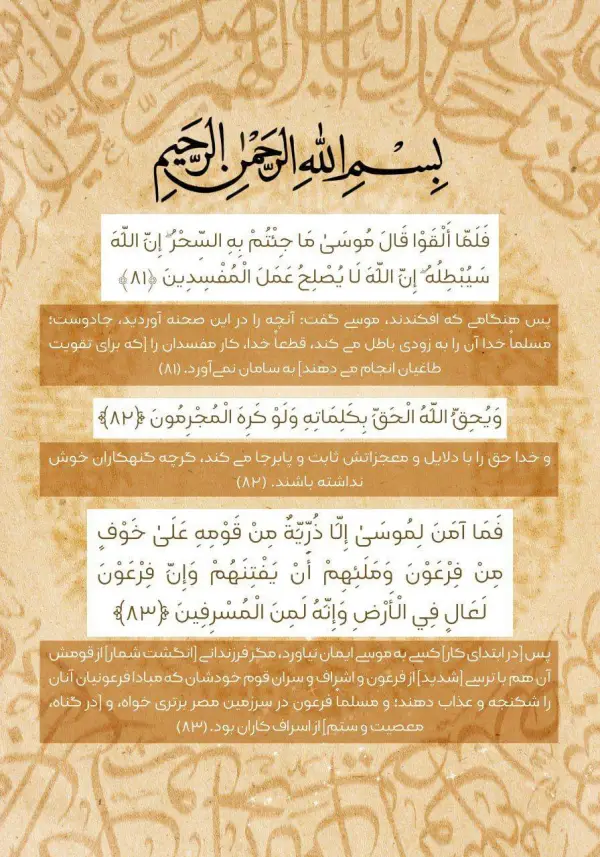 بِسْمِ اللهِ الرَّحْمٰنِ الرَّحِيمِ
فَلَمَّا أَلْقَوْا قَالَ مُوسَىٰ مَا جِئْتُمْ بِهِ السِّحْرُ ۖ إِنَّ اللَّهَ
سَيُبْطِلُهُ ۖ إِنَّ اللَّهَ لَا يُصْلِحُ عَمَلَ الْمُفْسِدِينَ ﴿۸۱﴾
پس هنگامی که افکندند، موسی گفت: آنچه را در این صحنه آوردید، جادوست؛
مسلماً خدا آن را به زودی باطل می کند، قطعاً خدا، کار مفسدان را [که برای تقویت
طاغیان انجام می دهند] به سامان نمی‌آورد. (۸۱)
وَيُحِقُّ اللَّهُ الْحَقَّ بِكَلِمَاتِهِ وَلَوْ كَرِهَ الْمُجْرِمُونَ ﴿۸۲﴾
و خدا حق را با دلایل و معجزاتش ثابت و پابرجا می کند، گرچه گنهکاران خوش
نداشته باشند. (۸۲)
فَمَا آمَنَ لِمُوسَىٰ إِلَّا ذُرِّيَّةٌ مِنْ قَوْمِهِ عَلَىٰ خَوْفٍ
مِنْ فِرْعَوْنَ وَمَلَئِهِمْ أَنْ يَفْتِنَهُمْ وَإِنَّ فِرْعَوْنَ
لَعَالٍ فِي الْأَرْضِ وَإِنَّهُ لَمِنَ الْمُسْرِفِينَ ﴿۸۳﴾
پس [در ابتدای کار] کسی به موسی ایمان نیاورد، مگر فرزندانی [انگشت شمار] از قومش
آن هم با ترسی [شدید] از فرعون و اشراف و سران قوم خودشان که مبادا فرعونیان آنان
را شکنجه و عذاب دهند؛ و مسلماً فرعون در سرزمین مصر برتری خواه، و [در گناه،
معصیت و ستم] از اسراف کاران بود. (۸۳)